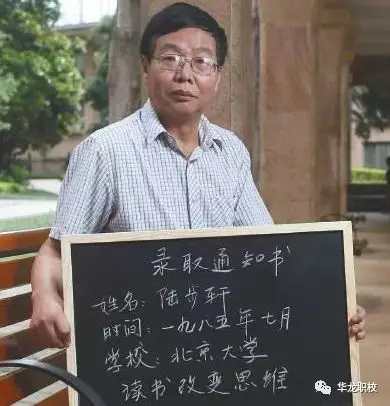 录取通知书
姓名：陆步轩
时间：一九八五年七月
学校：北京大学
读书改变思维
华龙职校